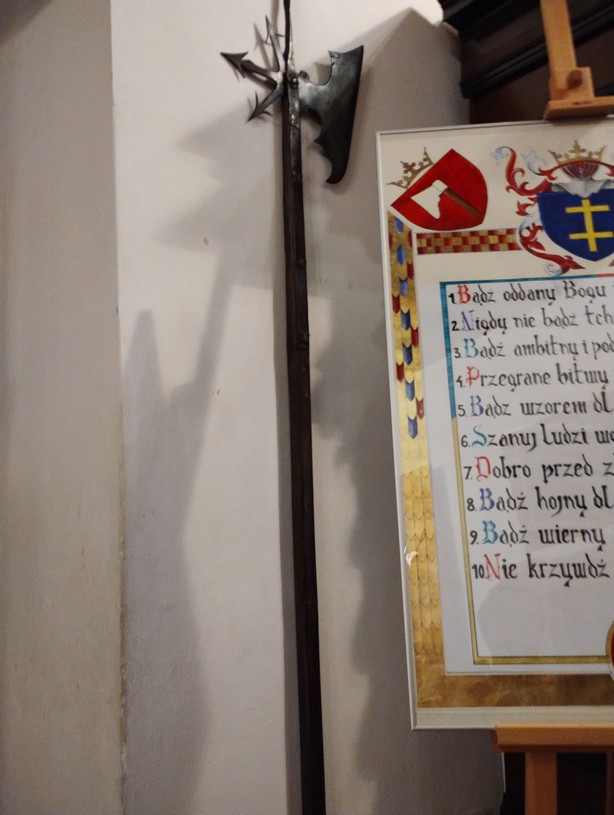 1. Bądź oddany Bogu
2. Nigdy nie bądź
3. Bądź ambitny i
4. Przegrane bitwy
5. Bądź wzorem dl
6. Szanuj ludzi
7. Dobro przed
8. Bądź hojny dl
9. Bądź wierny
10. Nie krzywdź